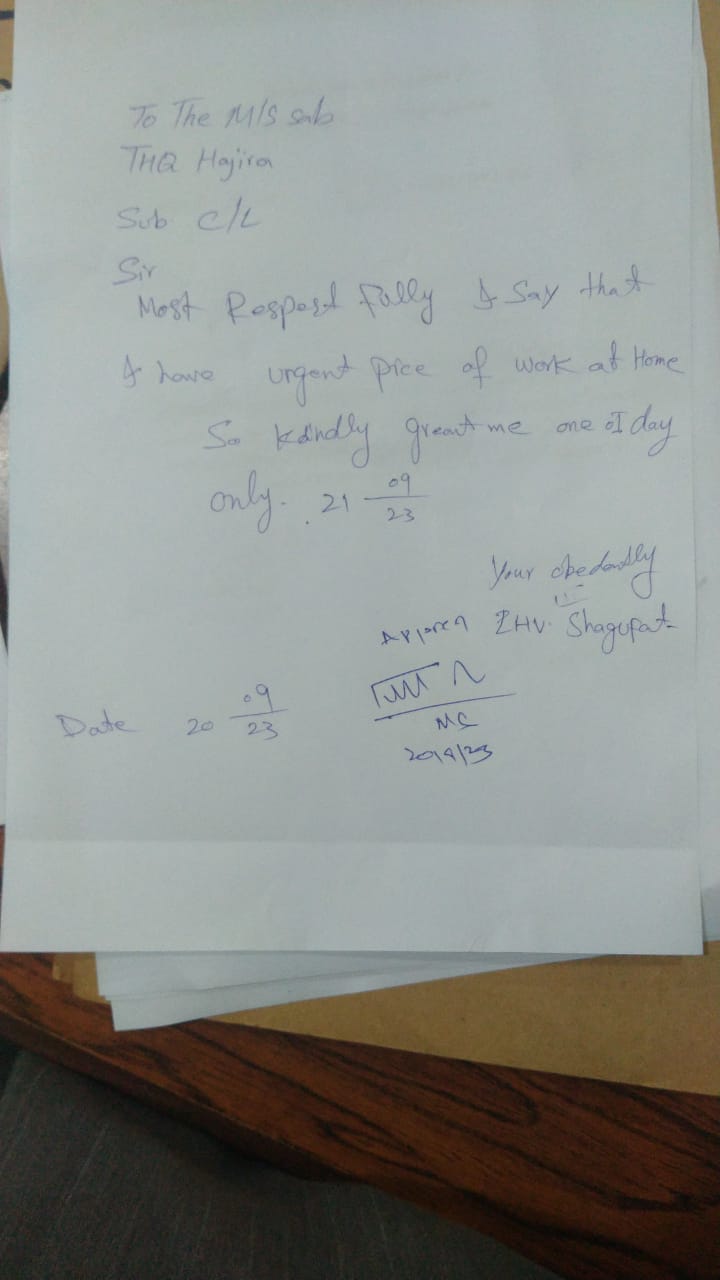 To The M/S sab
THQ Hajira
Sub C/L
Sir
Most Respect fully I Say that
I have urgent price of work at Home
So kindly greant me one 01 day
only. 21 09/23
Your obedandly
LHV. Shagufat
Date 20 09/23
MS
20/9/23